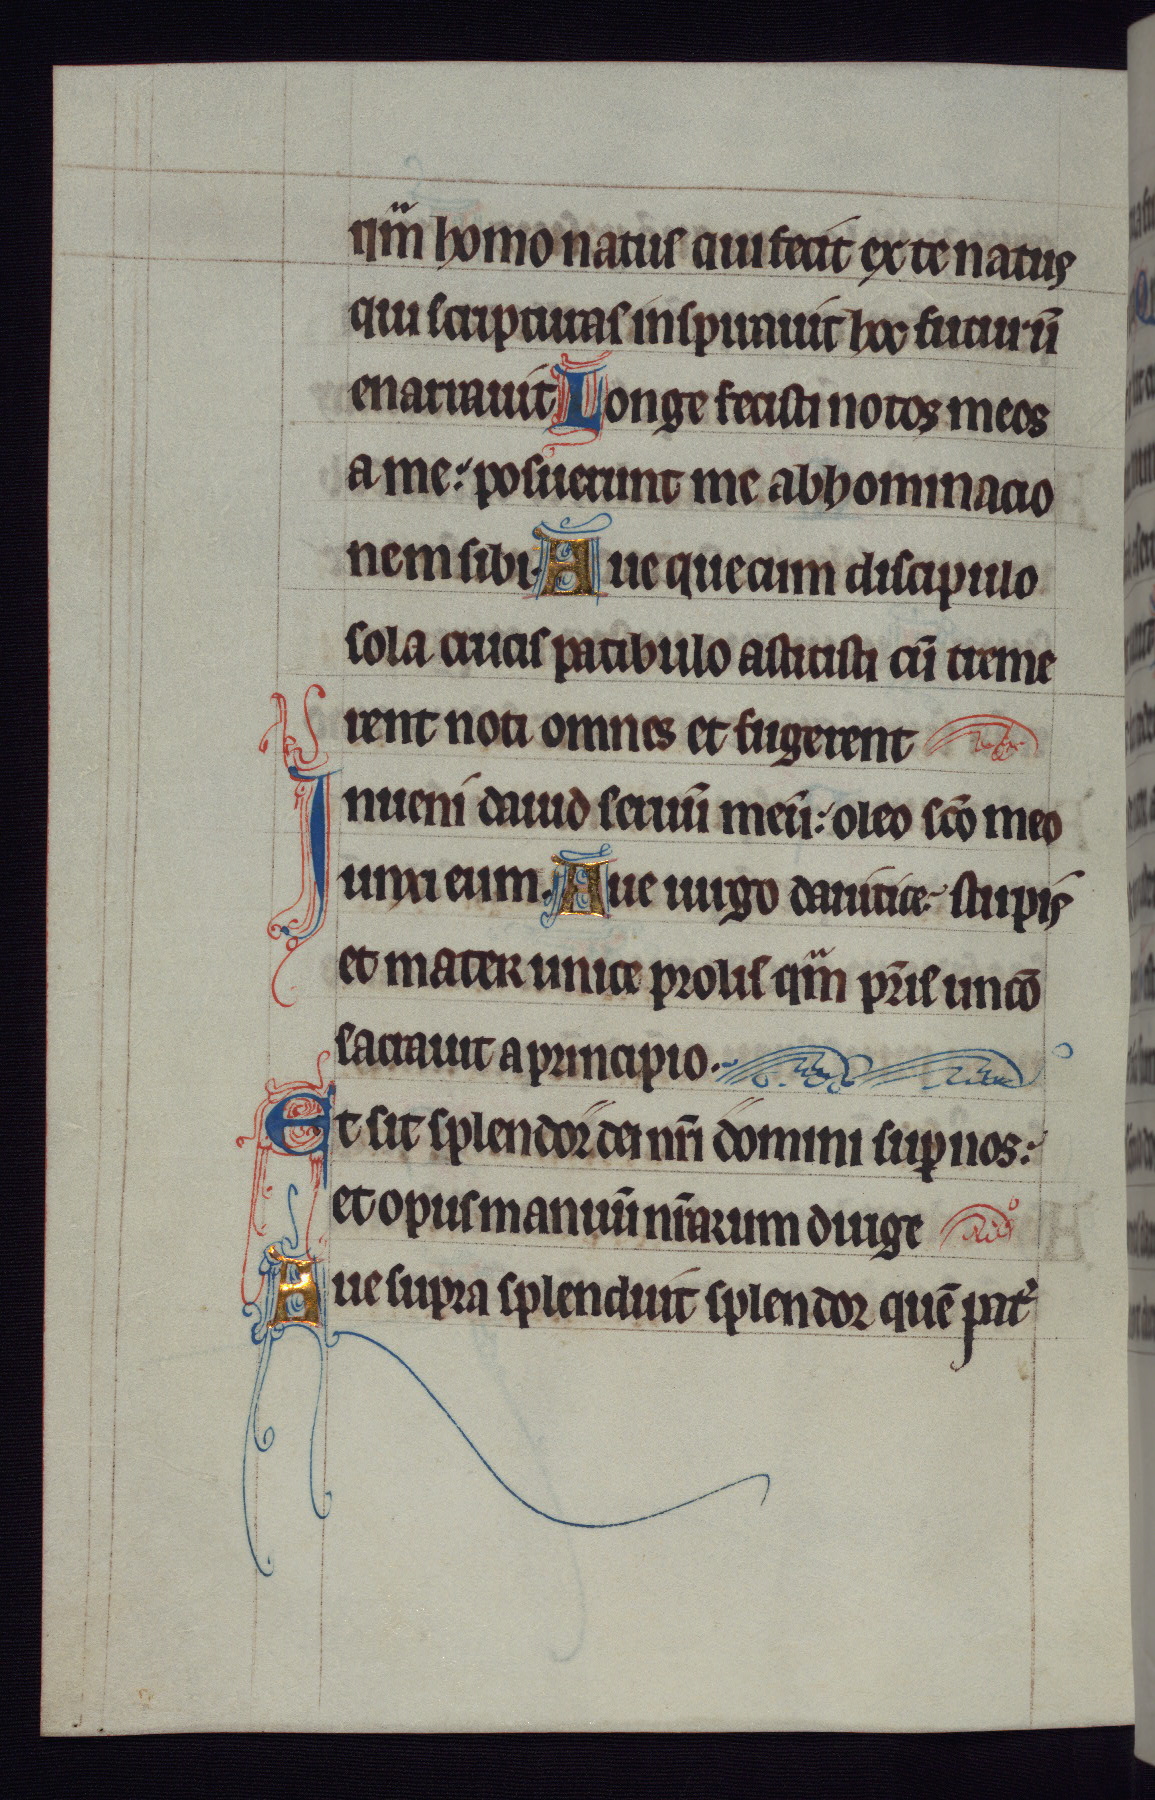 qm̄ homo natus qui fecit ex te natus
qui scripturas inspirauit hoc futurū
enarrauit Longe fecisti notos meos
a me: posuerunt me abhominacio
nem sibi. Aue que cum discipulo
sola crucis patibulo astitisti cū treme
rent noti omnes et fugerent
Inueni dauid seruū meū: oleo sc̄o meo
unxi eum. Aue uirgo dauitice stirpis
et mater unice prolis qm̄ pr̄is unctō
sacrauit a principio.
Et sit splendor dei nr̄i domini sup nos:
et opus manuū nr̄arum dirige
Aue supra splenduit splendor quē pat̉